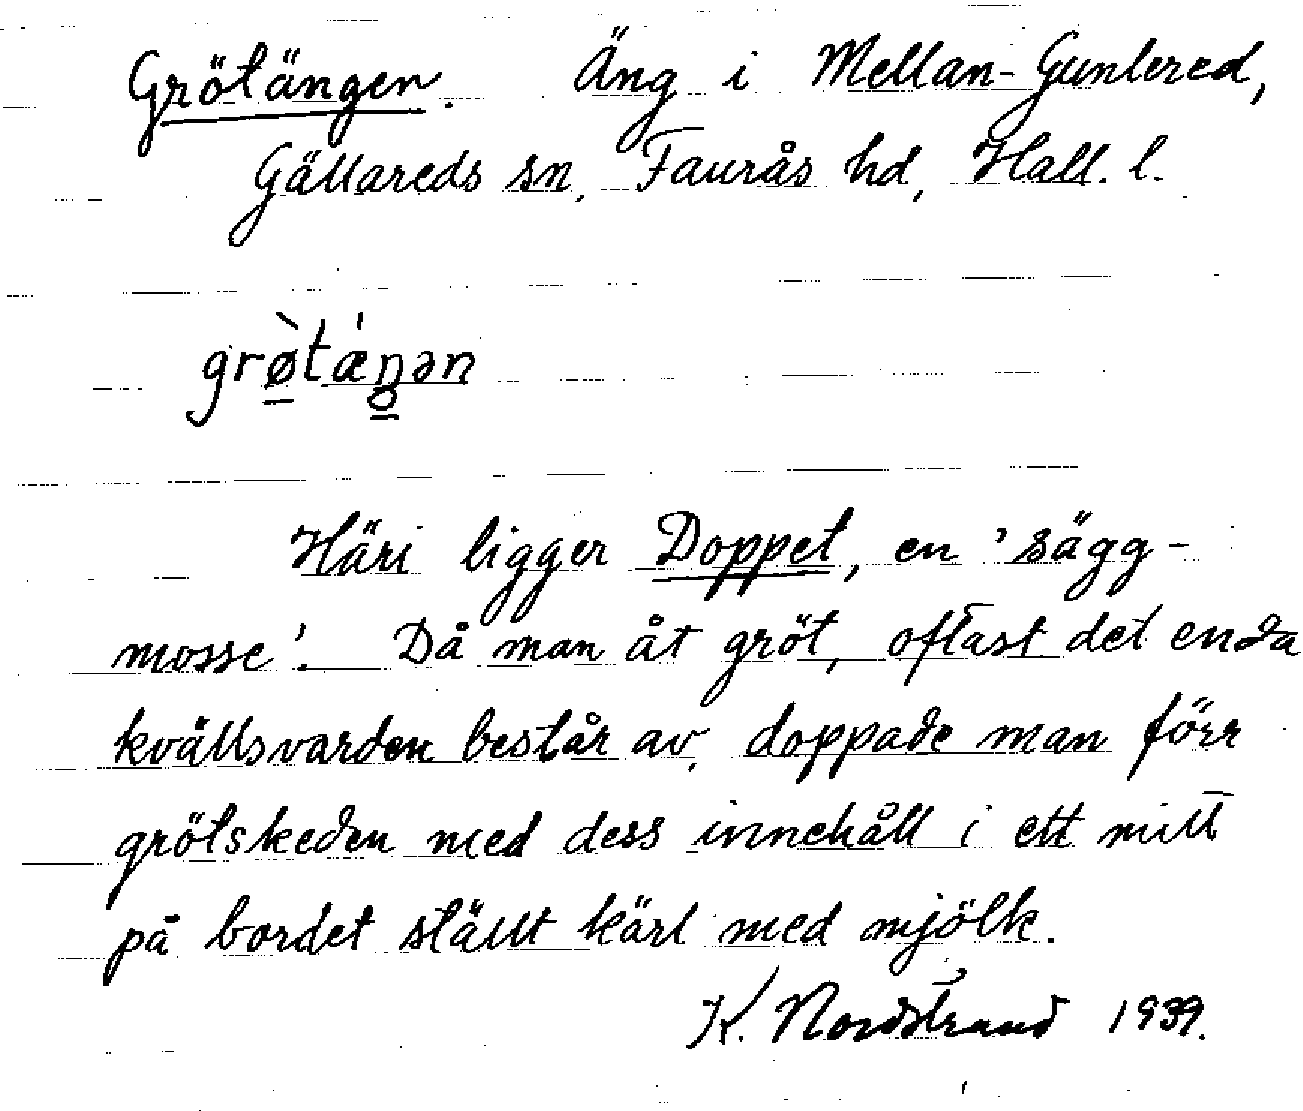 Grötängen. Äng i Mellan-Gunlered,
Gällareds sn, Faurås hd, Hall. l.
grø̀tǽŋən
Häri ligger Doppet, en 'sägg-
mosse'. Då man åt gröt, oftast det enda
kvällsvarden består av, doppade man förr
grötskeden med dess innehåll i ett mitt
på bordet ställt kärl med mjölk.
K. Nordstrand 1939.